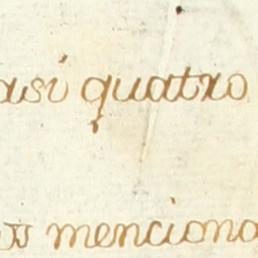 asi quatro
menciona